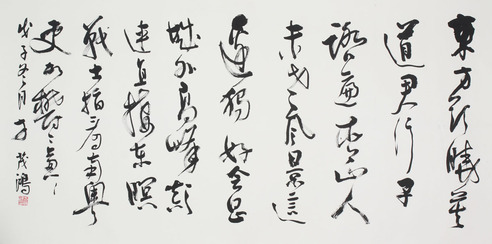 東方欲曉莫
道君行早
踏遍青山人
未老風景這
邊獨好會昌
城外高峰顛
連直接東溟
戰士指看南粵
更加鬱〻葱〻
戊子冬月 茂鴻